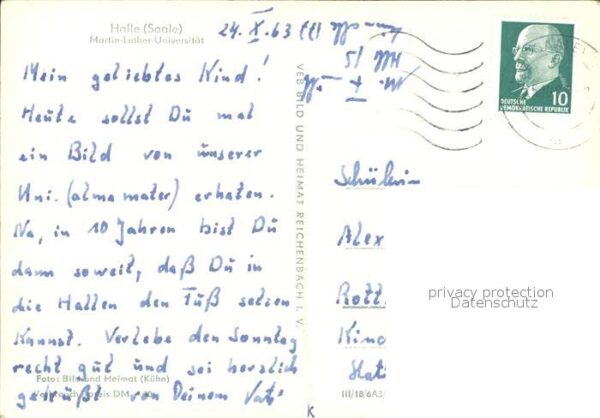 Halle (Saale)
Martin-Luther-Universität
24. X. 63
Mein geliebtes Kind!
Heute sollst Du mal
ein Bild von unserer
Uni. (alma mater) erhalten.
Na, in 10 Jahren bist Du
dann soweit, daß Du in
die Hallen den Fuß setzen
kannst. Verlebe den Sonntag
recht gut und sei herzlich
gegrüßt von Deinem Vati
Foto: Bild und Heimat (Kühn)
Verbraucherpreis DM
VEB BILD UND HEIMAT REICHENBACH I. V.
DEUTSCHE
DEMOKRATISCHE REPUBLIK
10
Schülerin
Alex
Rott
privacy protection
Datenschutz
Kind
III/18/6 A3/
K